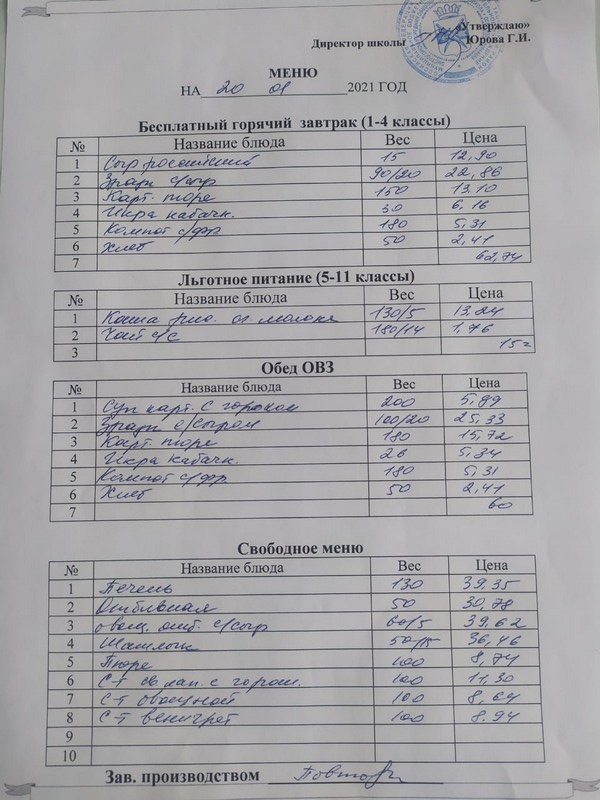 «Утверждаю»
Директор школы Юрова Г.И.
МЕНЮ
НА 20 01 2021 ГОД
Бесплатный горячий завтрак (1-4 классы)
№ Название блюда Вес Цена
1 Сыр российский 15 12,90
2 Зразы с/сыр 90/20 22,86
3 Карт. пюре 150 13.10
4 Икра кабачк. 30 6,16
5 Компот с/фр 180 5,31
6 Хлеб 50 2,41
7 62,74
Льготное питание (5-11 классы)
№ Название блюда Вес Цена
1 Каша молоке 130/5 13,24
2 Чай с/с 180/14 1,76
3 15=
Обед ОВЗ
№ Название блюда Вес Цена
1 Суп карт. с горохом 200 5,89
2 Зразы с/сыром 100/20 25,33
3 Карт. пюре 180 15,72
4 Икра кабачк. 26 5,34
5 Компот с/фр 180 5,31
6 Хлеб 50 2,41
7 60
Свободное меню
№ Название блюда Вес Цена
1 Печень 130 39,35
2 Отбивная 50 30,78
3 овощ. отб. с/сыр 60/5 39,62
4 Шашлык 50/15 36,46
5 Пюре 100 8,74
6 С-т св.кап. с горош. 100 11,30
7 С-т овощной 100 8,64
8 С-т венигрет 100 8.94
9
10
Зав. производством